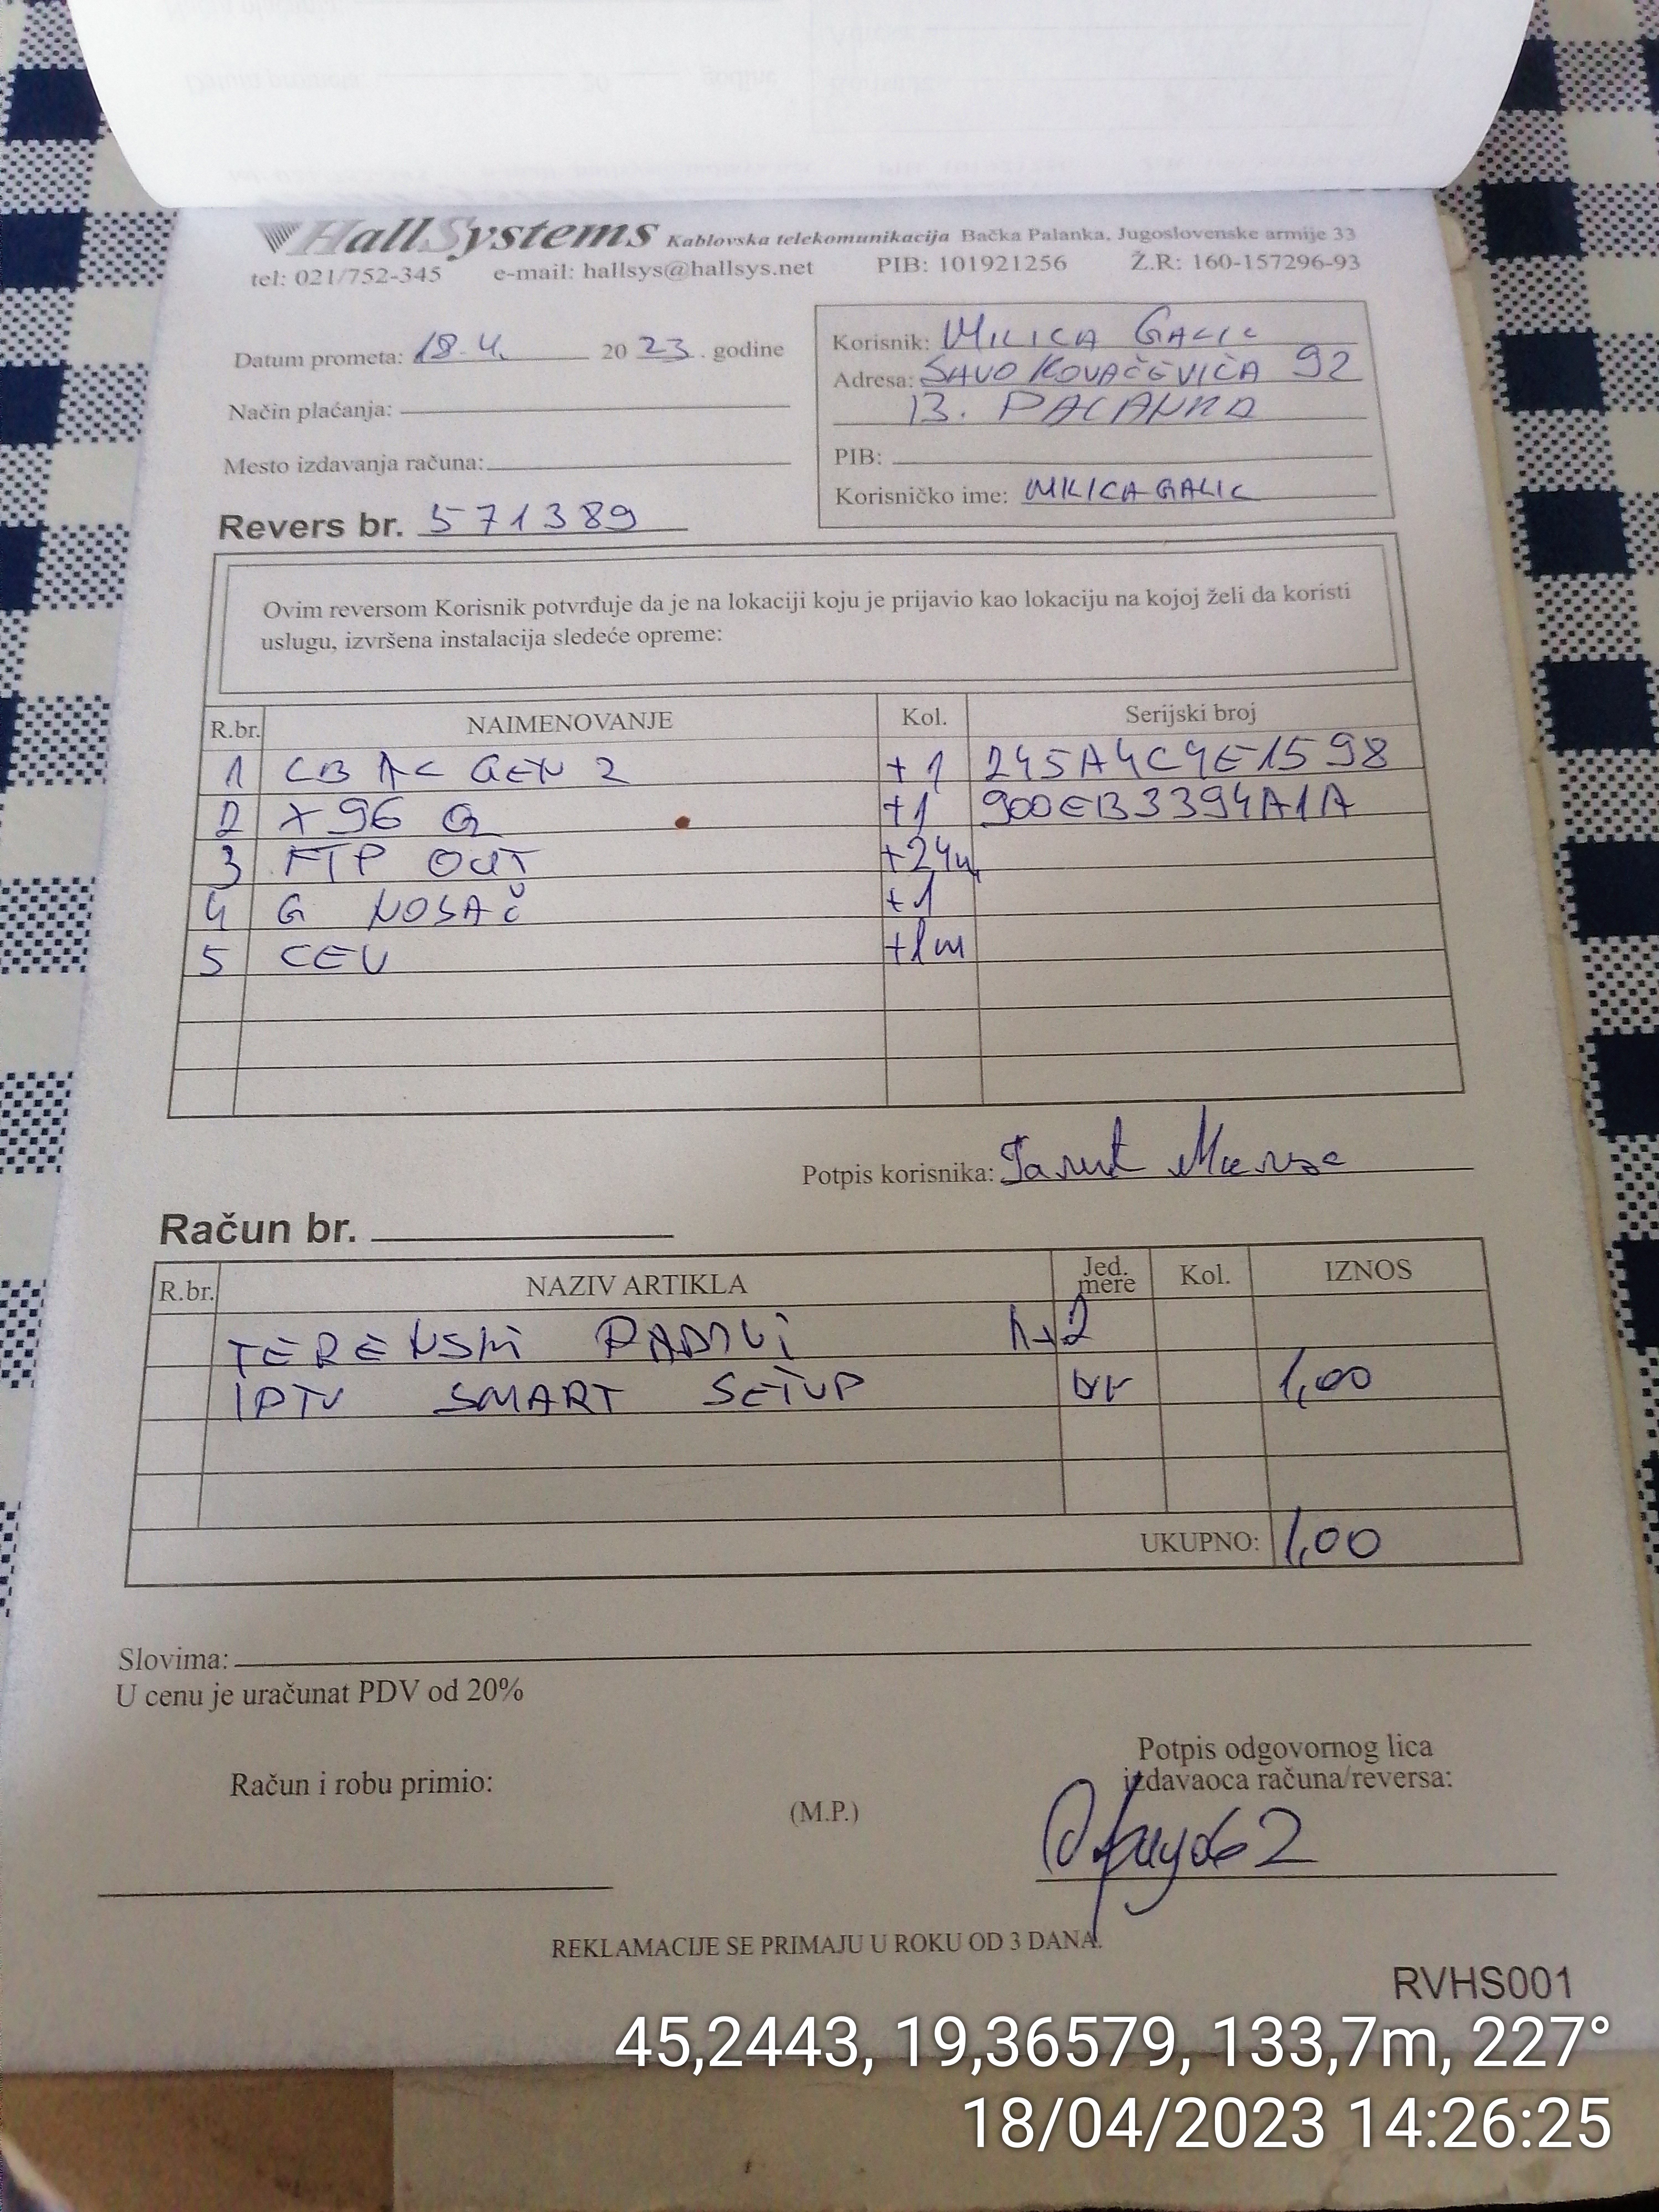 HallSystems Kablovska telekomunikacija Bačka Palanka, Jugoslovenske armije 33
tel: 021/752-345 e-mail: hallsys@hallsys.net PIB: 101921256 Ž.R: 160-157296-93
Datum prometa: 18.4. 20 23. godine
Način plaćanja:
Mesto izdavanja računa:
Revers br. 571389
Korisnik: MILICA GALIC
Adresa: SAVO KOVAČEVIĆA 92
B. PALANKA
PIB:
Korisničko ime: MILICAGALIC
Ovim reversom Korisnik potvrđuje da je na lokaciji koju je prijavio kao lokaciju na kojoj želi da koristi
uslugu, izvršena instalacija sledeće opreme:
R.br. NAIMENOVANJE Kol. Serijski broj
1 LB AC GEN 2 +1 245A4C4E1598
2 X96 Q +1 900EB3394A1A
3 FTP OUT +24m
4 G NOSAČ +1
5 CEV +1m
Potpis korisnika:
Račun br.
R.br. NAZIV ARTIKLA Jed. mere Kol. IZNOS
TERENSKI RADOVI
IPTV SMART SETUP 1,00
UKUPNO: 1,00
Slovima:
U cenu je uračunat PDV od 20%
Račun i robu primio:
(M.P.)
Potpis odgovornog lica
izdavaoca računa/reversa:
REKLAMACIJE SE PRIMAJU U ROKU OD 3 DANA.
RVHS001
45,2443, 19,36579, 133,7m, 227°
18/04/2023 14:26:25